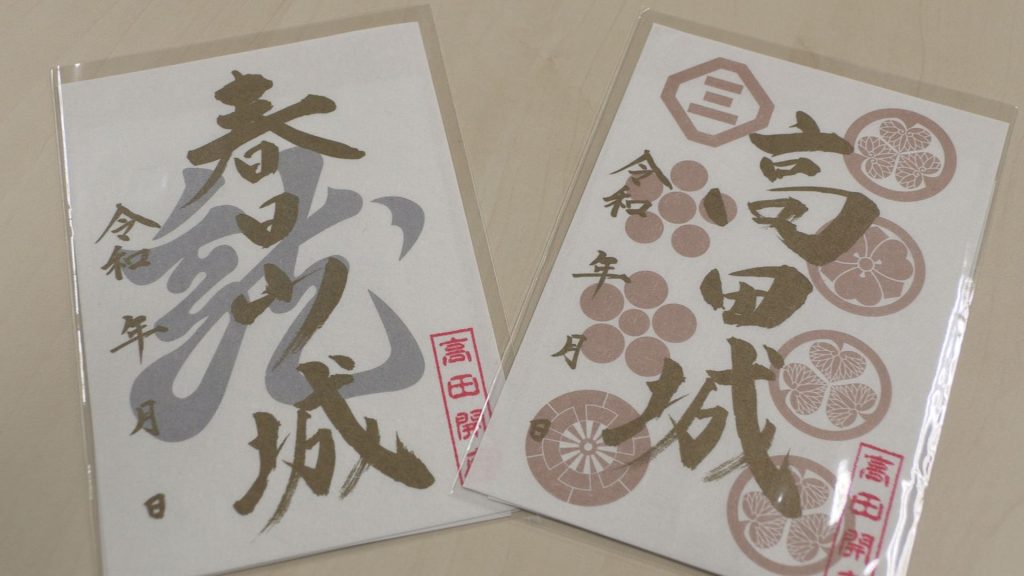 春日山城
龍
令和 年 月 日
高田開
高田城
三
令和 年 月 日
高田開